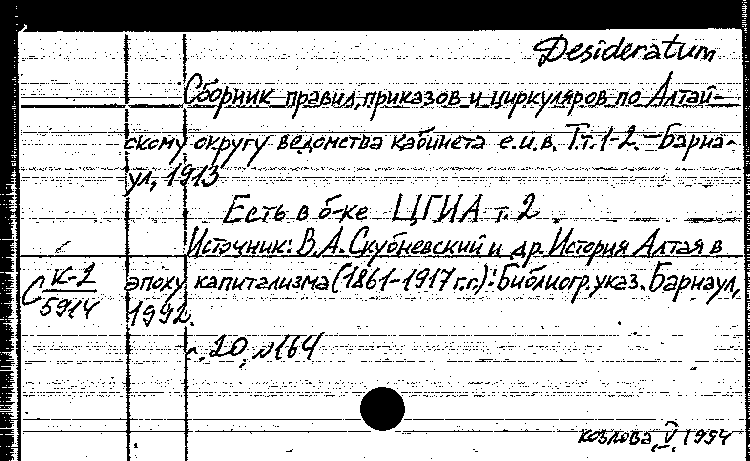 Desideratum
Сборник правил, приказов и циркуляров по Алтай-
скому округу ведомства кабинета е.и.в. Т.т. 1-2. - Барна-
ул, 1913
Есть в б-ке ЦГИА т. 2.
Источник: В.А. Скубневский и др. История Алтая в
С К-2
5914
эпоху капитализма (1861-1917 г.г.): Библиогр. указ. Барнаул,
1992.
с. 20, №164
Козлова, V, 1994